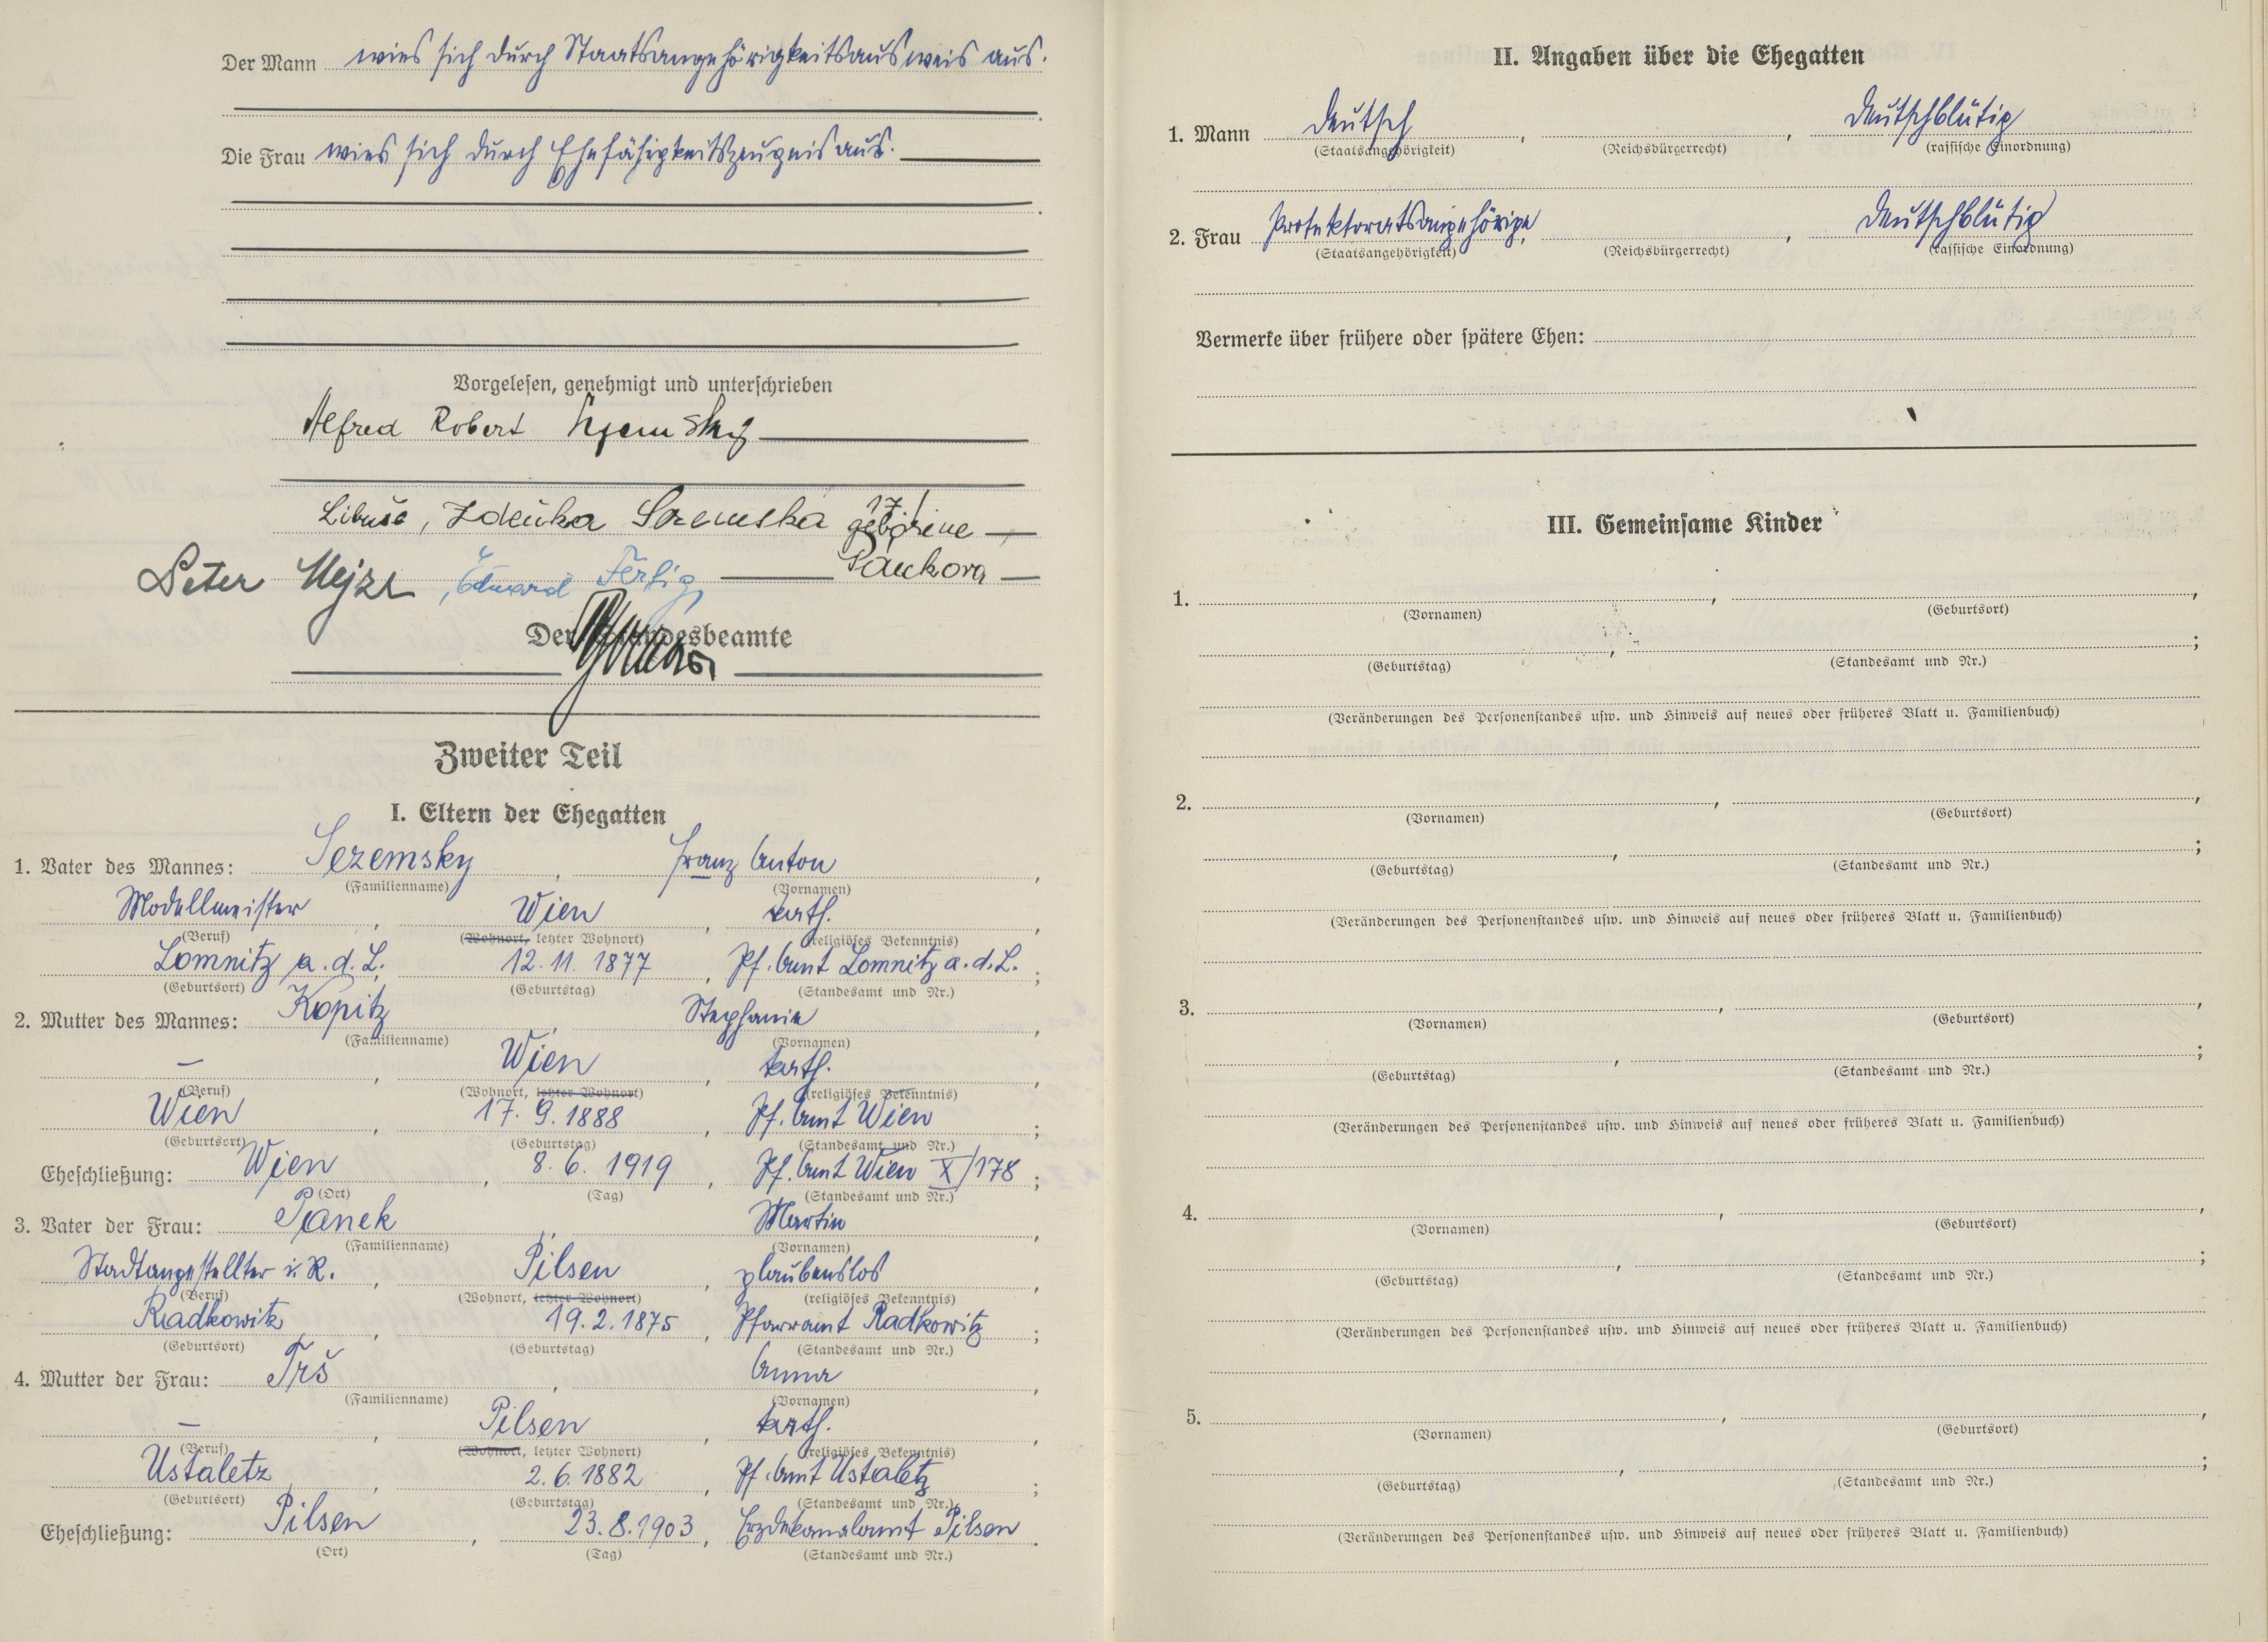 Der Mann wies sich durch Staatsangehörigkeitsausweis aus.
Die Frau wies sich durch Ehefähigkeitszeugnis aus.
Vorgelesen, genehmigt und unterschrieben
Alfred Robert
Libuše, Zdeňka Sezemska geborene
Peter Hejzr, Eduard Fertig Pánkova
Der Standesbeamte
Zweiter Teil
I. Eltern der Ehegatten
1. Vater des Mannes: Sezemsky, Franz Anton,
(Familienname) (Vornamen)
Modellmeister, Wien, kath.,
(Beruf) (Wohnort, letzter Wohnort) (religiöses Bekenntnis)
Lomnitz a. d. L., 12. 11. 1877, Pf. Amt Lomnitz a. d. L.;
(Geburtsort) (Geburtstag) (Standesamt und Nr.)
2. Mutter des Mannes: Kopitz, Stephanie,
(Familienname) (Vornamen)
–, Wien, kath.,
(Beruf) (Wohnort, letzter Wohnort) (religiöses Bekenntnis)
Wien, 17. 9. 1888, Pf. Amt Wien;
(Geburtsort) (Geburtstag) (Standesamt und Nr.)
Eheschließung: Wien, 8. 6. 1919, Pf. Amt Wien X/178;
(Ort) (Tag) (Standesamt und Nr.)
3. Vater der Frau: Panek, Martin,
(Familienname) (Vornamen)
Stadtangestellter i. R., Pilsen, glaubenslos,
(Beruf) (Wohnort, letzter Wohnort) (religiöses Bekenntnis)
Radkowitz, 19. 2. 1875, Pfarramt Radkowitz;
(Geburtsort) (Geburtstag) (Standesamt und Nr.)
4. Mutter der Frau: Trš, Anna,
(Familienname) (Vornamen)
–, Pilsen, kath.,
(Beruf) (Wohnort, letzter Wohnort) (religiöses Bekenntnis)
Ustaletz, 2. 6. 1882, Pf. Amt Ustaletz;
(Geburtsort) (Geburtstag) (Standesamt und Nr.)
Eheschließung: Pilsen, 23. 8. 1903, Erzdekanalamt Pilsen.
(Ort) (Tag) (Standesamt und Nr.)
II. Angaben über die Ehegatten
1. Mann deutsch, , deutschblütig
(Staatsangehörigkeit) (Reichsbürgerrecht) (rassische Einordnung)
2. Frau Protektoratsangehörige, , deutschblütig
(Staatsangehörigkeit) (Reichsbürgerrecht) (rassische Einordnung)
Vermerke über frühere oder spätere Ehen:
III. Gemeinsame Kinder
1. , ,
(Vornamen) (Geburtsort)
, ;
(Geburtstag) (Standesamt und Nr.)
(Veränderungen des Personenstandes usw. und Hinweis auf neues oder früheres Blatt u. Familienbuch)
2. , ,
(Vornamen) (Geburtsort)
, ;
(Geburtstag) (Standesamt und Nr.)
(Veränderungen des Personenstandes usw. und Hinweis auf neues oder früheres Blatt u. Familienbuch)
3. , ,
(Vornamen) (Geburtsort)
, ;
(Geburtstag) (Standesamt und Nr.)
(Veränderungen des Personenstandes usw. und Hinweis auf neues oder früheres Blatt u. Familienbuch)
4. , ,
(Vornamen) (Geburtsort)
, ;
(Geburtstag) (Standesamt und Nr.)
(Veränderungen des Personenstandes usw. und Hinweis auf neues oder früheres Blatt u. Familienbuch)
5. , ,
(Vornamen) (Geburtsort)
, ;
(Geburtstag) (Standesamt und Nr.)
(Veränderungen des Personenstandes usw. und Hinweis auf neues oder früheres Blatt u. Familienbuch)